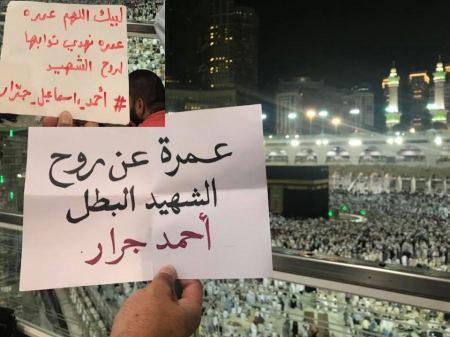 لبيك اللهم عمره
عمره نهدي ثوابها
لروح الشهيد
#أحمد_اسماعيل_جرّار
عمرة عن روح
الشهيد البطل
أحمد جرار